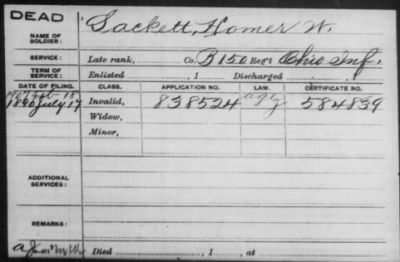 DEAD
NAME OF SOLDIER: Sackett, Homer W.
SERVICE: Late rank, Co. B 150 Reg't Ohio Inf.
TERM OF SERVICE: Enlisted , 1 Discharged , 1
DATE OF FILING. CLASS. APPLICATION NO. LAW. CERTIFICATE NO.
1890 July 17 Invalid, 838524 584839
Widow,
Minor,
ADDITIONAL SERVICES:
REMARKS:
Died , 1 , at